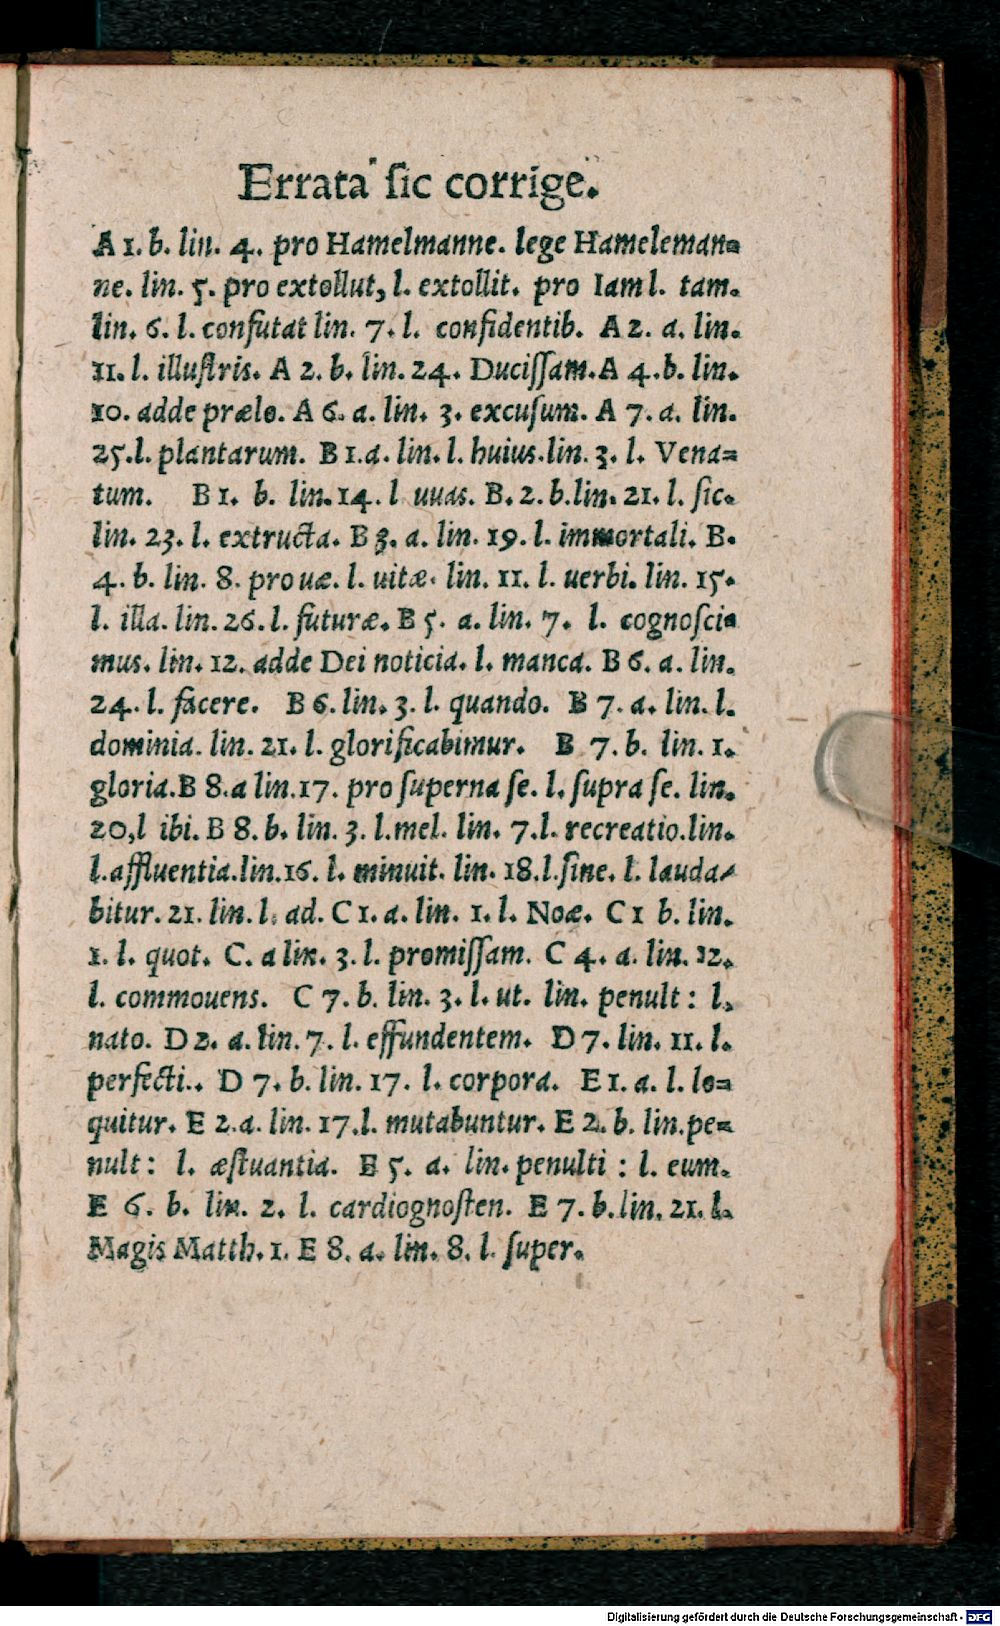 Errata sic corrige.
A 1. b. lin. 4. pro Hamelmanne. lege Hameleman=
ne. lin. 5. pro extollut, l. extollit. pro Iam l. tam.
lin. 6. l. confutat lin. 7. l. confidentib. A 2. a. lin.
11. l. illuſtris. A 2. b. lin. 24. Duciſſam. A 4. b. lin.
10. adde prælo. A 6. a. lin. 3. excuſum. A 7. a. lin.
25. l. plantarum. B 1. a. lin. l. huius. lin. 3. l. Vena=
tum. B 1. b. lin. 14. l uuas. B. 2. b. lin. 21. l. ſic.
lin. 23. l. extructa. B 3. a. lin. 19. l. immortali. B.
4. b. lin. 8. pro uæ. l. uitæ. lin. 11. l. uerbi. lin. 15.
l. illa. lin. 26. l. futuræ. B 5. a. lin. 7. l. cognoſci=
mus. lin. 12. adde Dei noticia. l. manca. B 6. a. lin.
24. l. facere. B 6. lin. 3. l. quando. B 7. a. lin. l.
dominia. lin. 21. l. glorificabimur. B 7. b. lin. 1.
gloria. B 8. a lin. 17. pro ſuperna ſe. l. ſupra ſe. lin.
20, l ibi. B 8. b. lin. 3. l. mel. lin. 7. l. recreatio. lin.
l. affluentia. lin. 16. l. minuit. lin. 18. l. ſine. l. lauda=
bitur. 21. lin. l. ad. C 1. a. lin. 1. l. Noæ. C 1 b. lin.
1. l. quot. C. a lin. 3. l. promiſſam. C 4. a. lin. 12.
l. commouens. C 7. b. lin. 3. l. ut. lin. penult: l.
nato. D 2. a. lin. 7. l. effundentem. D 7. lin. 11. l.
perfecti.. D 7. b. lin. 17. l. corpora. E 1. a. l. lo=
quitur. E 2. a. lin. 17. l. mutabuntur. E 2. b. lin. pe=
nult: l. æſtuantia. E 5. a. lin. penulti: l. eum.
E 6. b. lin. 2. l. cardiognoſten. E 7. b. lin. 21. l.
Magis Matth. 1. E 8. a. lin. 8. l. ſuper.
Digitalisierung gefördert durch die Deutsche Forschungsgemeinschaft - DFG